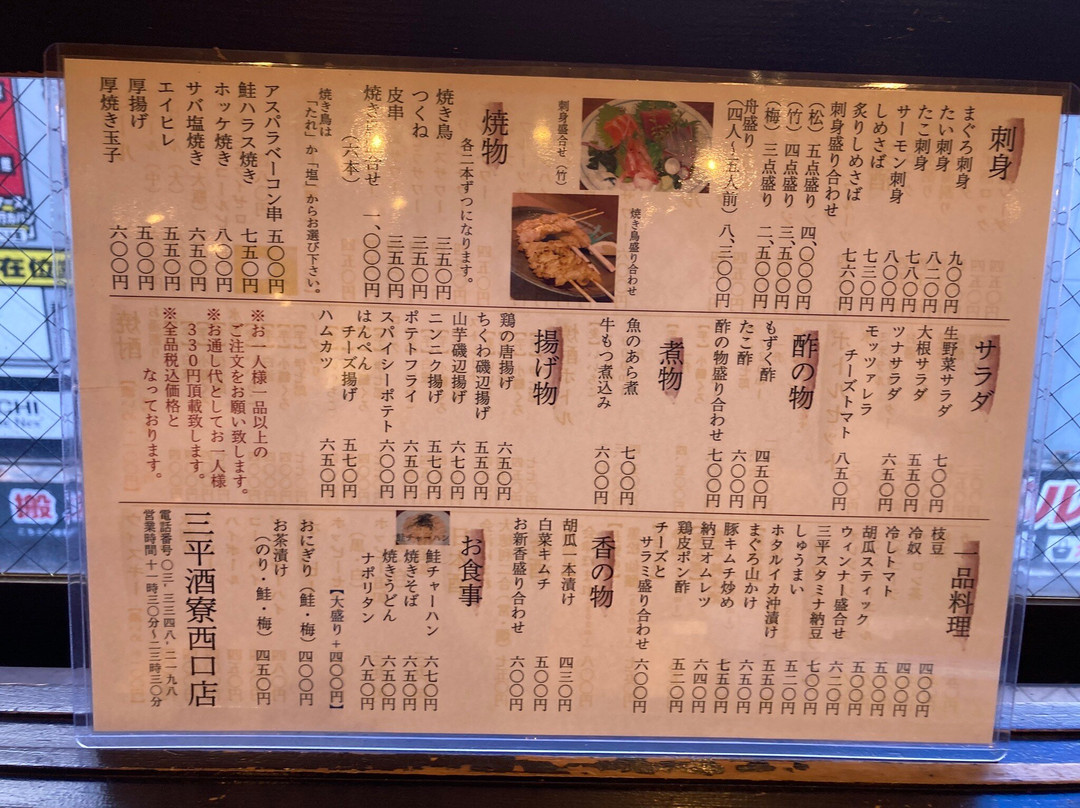 刺身
まぐろ刺身 九〇〇円
たい刺身 八二〇円
たこ刺身 七八〇円
サーモン刺身 八〇〇円
しめさば 七三〇円
炙りしめさば 七六〇円
刺身盛り合わせ
(松) 五点盛り 四、〇〇〇円
(竹) 四点盛り 三、五〇〇円
(梅) 三点盛り 二、五〇〇円
舟盛り
(四人～五人前) 八、三〇〇円
刺身盛合せ(竹)
焼き鳥盛り合わせ
焼物
各二本ずつになります。
焼き鳥 三五〇円
つくね 三五〇円
皮串 三五〇円
焼き鳥盛合せ
(六本) 一、〇〇〇円
焼き鳥は
「たれ」か「塩」からお選び下さい。
アスパラベーコン串 五〇〇円
鮭ハラス焼き 七五〇円
ホッケ焼き 八〇〇円
サバ塩焼き 六五〇円
エイヒレ 五五〇円
厚揚げ 五〇〇円
厚焼き玉子 六〇〇円
サラダ
生野菜サラダ 七〇〇円
大根サラダ 五五〇円
ツナサラダ 六五〇円
モッツァレラ
チーズトマト 八五〇円
酢の物
もずく酢 四五〇円
たこ酢 六〇〇円
酢の物盛り合わせ 七〇〇円
煮物
魚のあら煮 七〇〇円
牛もつ煮込み 六〇〇円
揚げ物
鶏の唐揚げ 六五〇円
ちくわ磯辺揚げ 五五〇円
山芋磯辺揚げ 六七〇円
ニンニク揚げ 五七〇円
ポテトフライ 六五〇円
スパイシーポテト 六〇〇円
はんぺん
チーズ揚げ 五七〇円
ハムカツ 六五〇円
※お一人様一品以上の
ご注文をお願い致します。
※お通し代としてお一人様
３３０円頂戴致します。
※全品税込価格と
なっております。
一品料理
枝豆 四〇〇円
冷奴 四〇〇円
冷しトマト 五〇〇円
胡瓜スティック 五〇〇円
ウィンナー盛合せ 六二〇円
三平スタミナ納豆 七〇〇円
しゅうまい 五二〇円
ホタルイカ沖漬け 五五〇円
まぐろ山かけ 六五〇円
豚キムチ炒め 七五〇円
納豆オムレツ 六四〇円
鶏皮ポン酢 五二〇円
チーズと
サラミ盛り合わせ 六〇〇円
香の物
胡瓜一本漬け 四三〇円
白菜キムチ 五〇〇円
お新香盛り合わせ 六〇〇円
お食事
鮭チャーハン 六七〇円
焼きそば 六五〇円
焼きうどん 六五〇円
ナポリタン 八五〇円
【大盛り＋四〇〇円】
おにぎり(鮭・梅) 四〇〇円
お茶漬け
(のり・鮭・梅) 四五〇円
三平酒寮西口店
電話番号〇三‐三三四八‐二一九八
営業時間 十一時三〇分～二三時三〇分